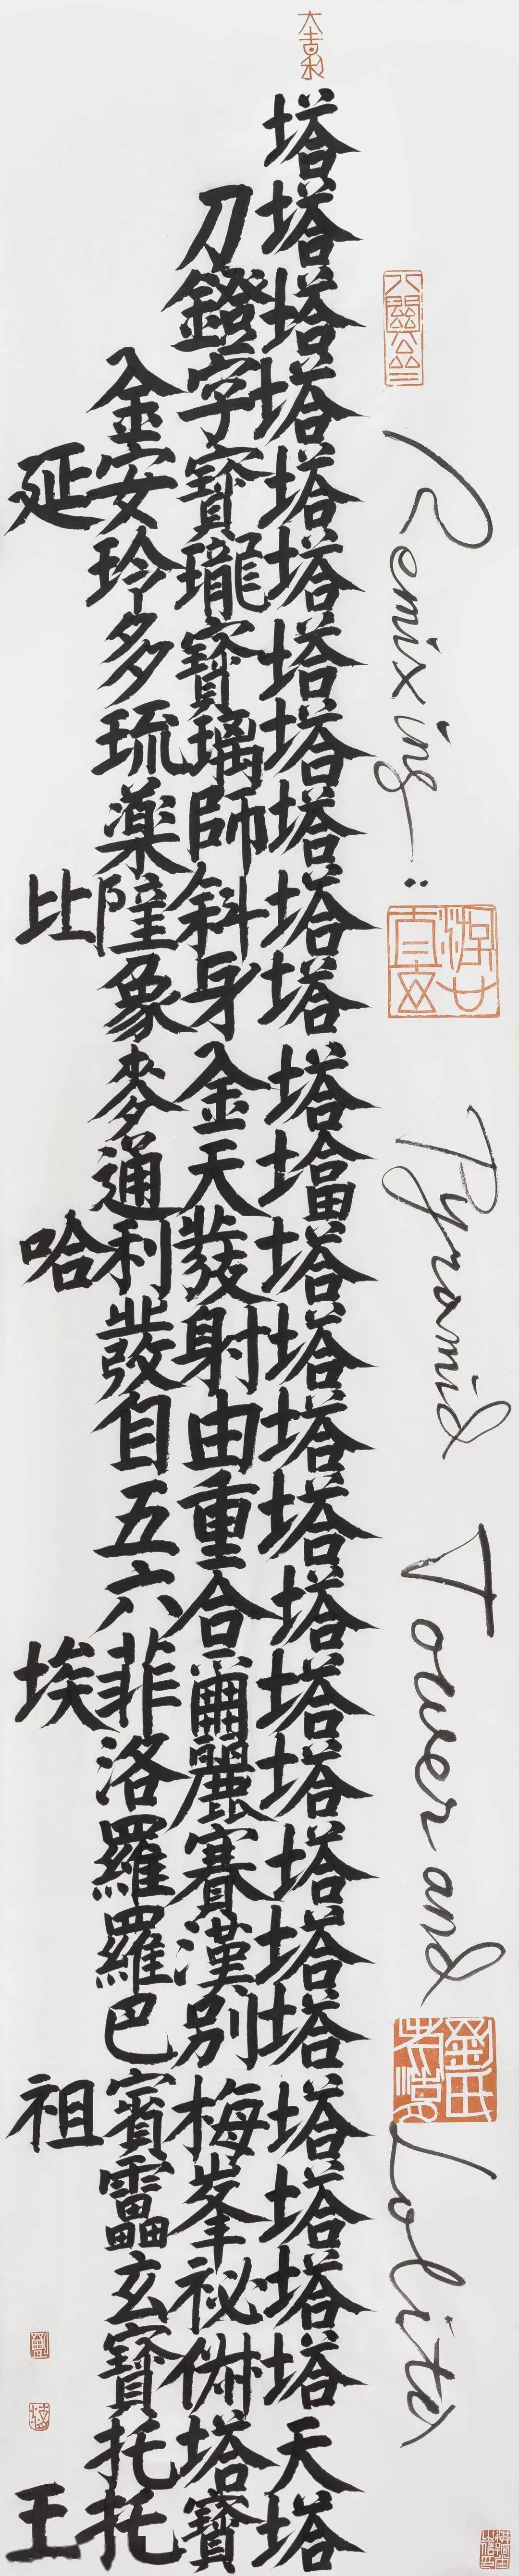 大吉利
塔
刀塔
鐙塔
金字塔
延安寶塔
玲瓏塔
多寶塔
琉璃塔
藥師塔
比薩斜塔
象身塔
麥金塔
通天塔
哈利發塔
發射塔
自由塔
五重塔
六合塔
埃菲爾塔
洛麗塔
羅賽塔
羅漢塔
巴別塔
祖賓梅塔
靁峯塔
玄祕塔
寶俶塔
托塔天
王托寶塔
Remixing: Pyramid Tower and Lolita